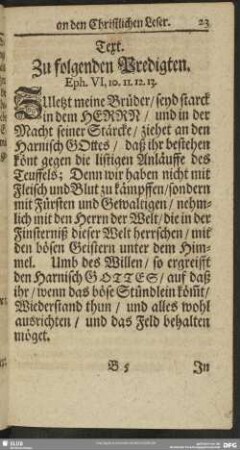 an den Christlichen Leser. 23
Text.
Zu folgenden Predigten.
Eph. VI, 10. 11. 12. 13.
ZUletzt meine Brüder / seyd starck
in dem HERRN / und in der
Macht seiner Stärcke / ziehet an den
Harnisch GOttes / daß ihr bestehen
könt gegen die listigen Anläuffe des
Teuffels; Denn wir haben nicht mit
Fleisch und Blut zu kämpffen / sondern
mit Fürsten und Gewaltigen / nehm-
lich mit den Herrn der Welt / die in der
Finsterniß dieser Welt herrschen / mit
den bösen Geistern unter dem Him-
mel. Umb des Willen / so ergreifft
den Harnisch GOTTES / auf daß
ihr / wenn das böse Stündlein kömt /
Wiederstand thun / und alles wohl
ausrichten / und das Feld behalten
möget.
B 5 In
SLUB
DFG